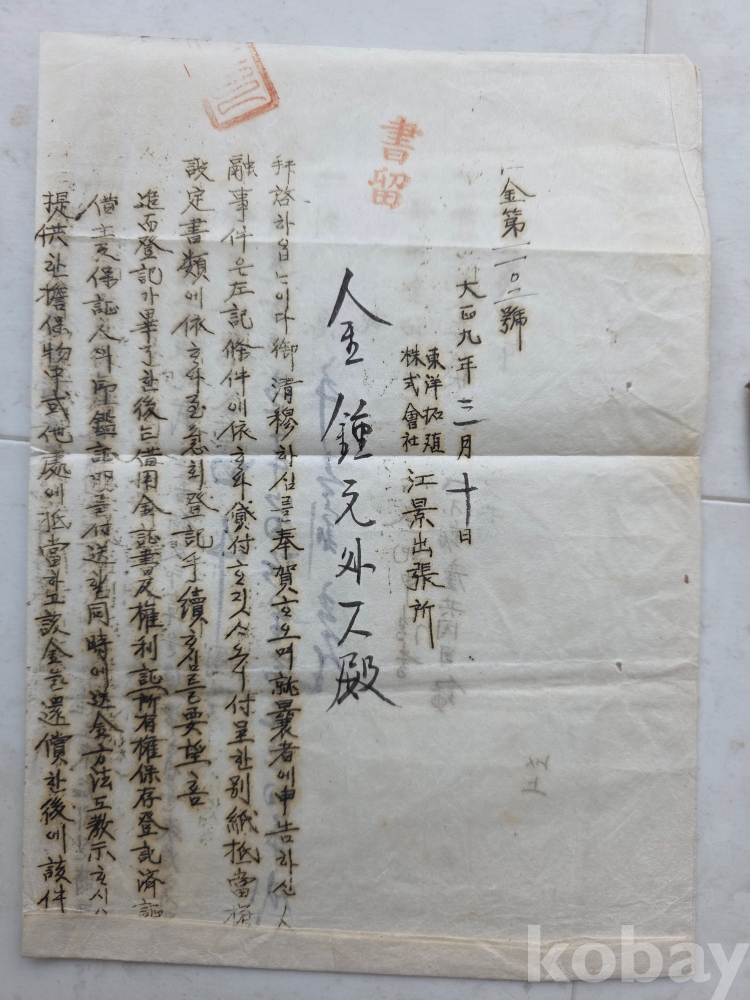 書留
金第一一〇二號
大正九年三月十日
東洋拓殖
株式會社
江景出張所
金鍾元外 殿
拜啓하옵는이다御淸穆하심를奉賀호오며就曩者에申告하신
融事件은左記條件에依호야貸付호깃 付呈한別紙抵當權
設定書類에依호야至急히登記手續호심를要望홈
進而登記가畢了한後는借用金証書及權利証所有權保存登記済証
借主及保証人의印鑑証明를付送 同時에送金方法도敎示호시
提供한擔保物中或他處에抵當하고該金을還償한後에該件
以上
kobay